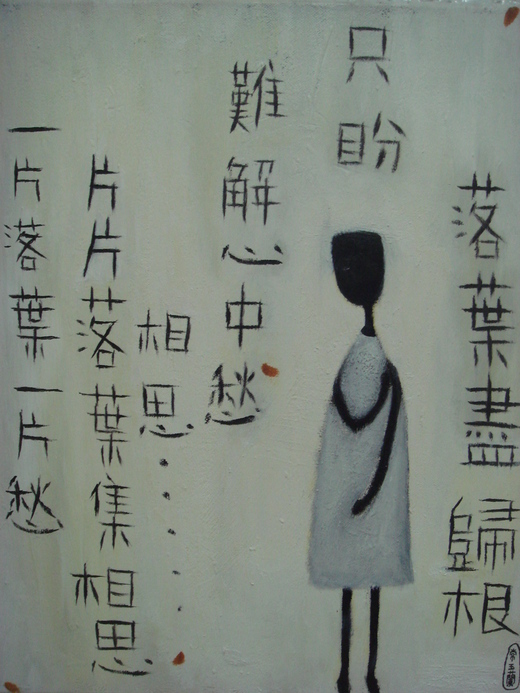 一片落葉一片愁
片片落葉集相思
相思.....
難解心中愁
只盼
落葉盡歸根